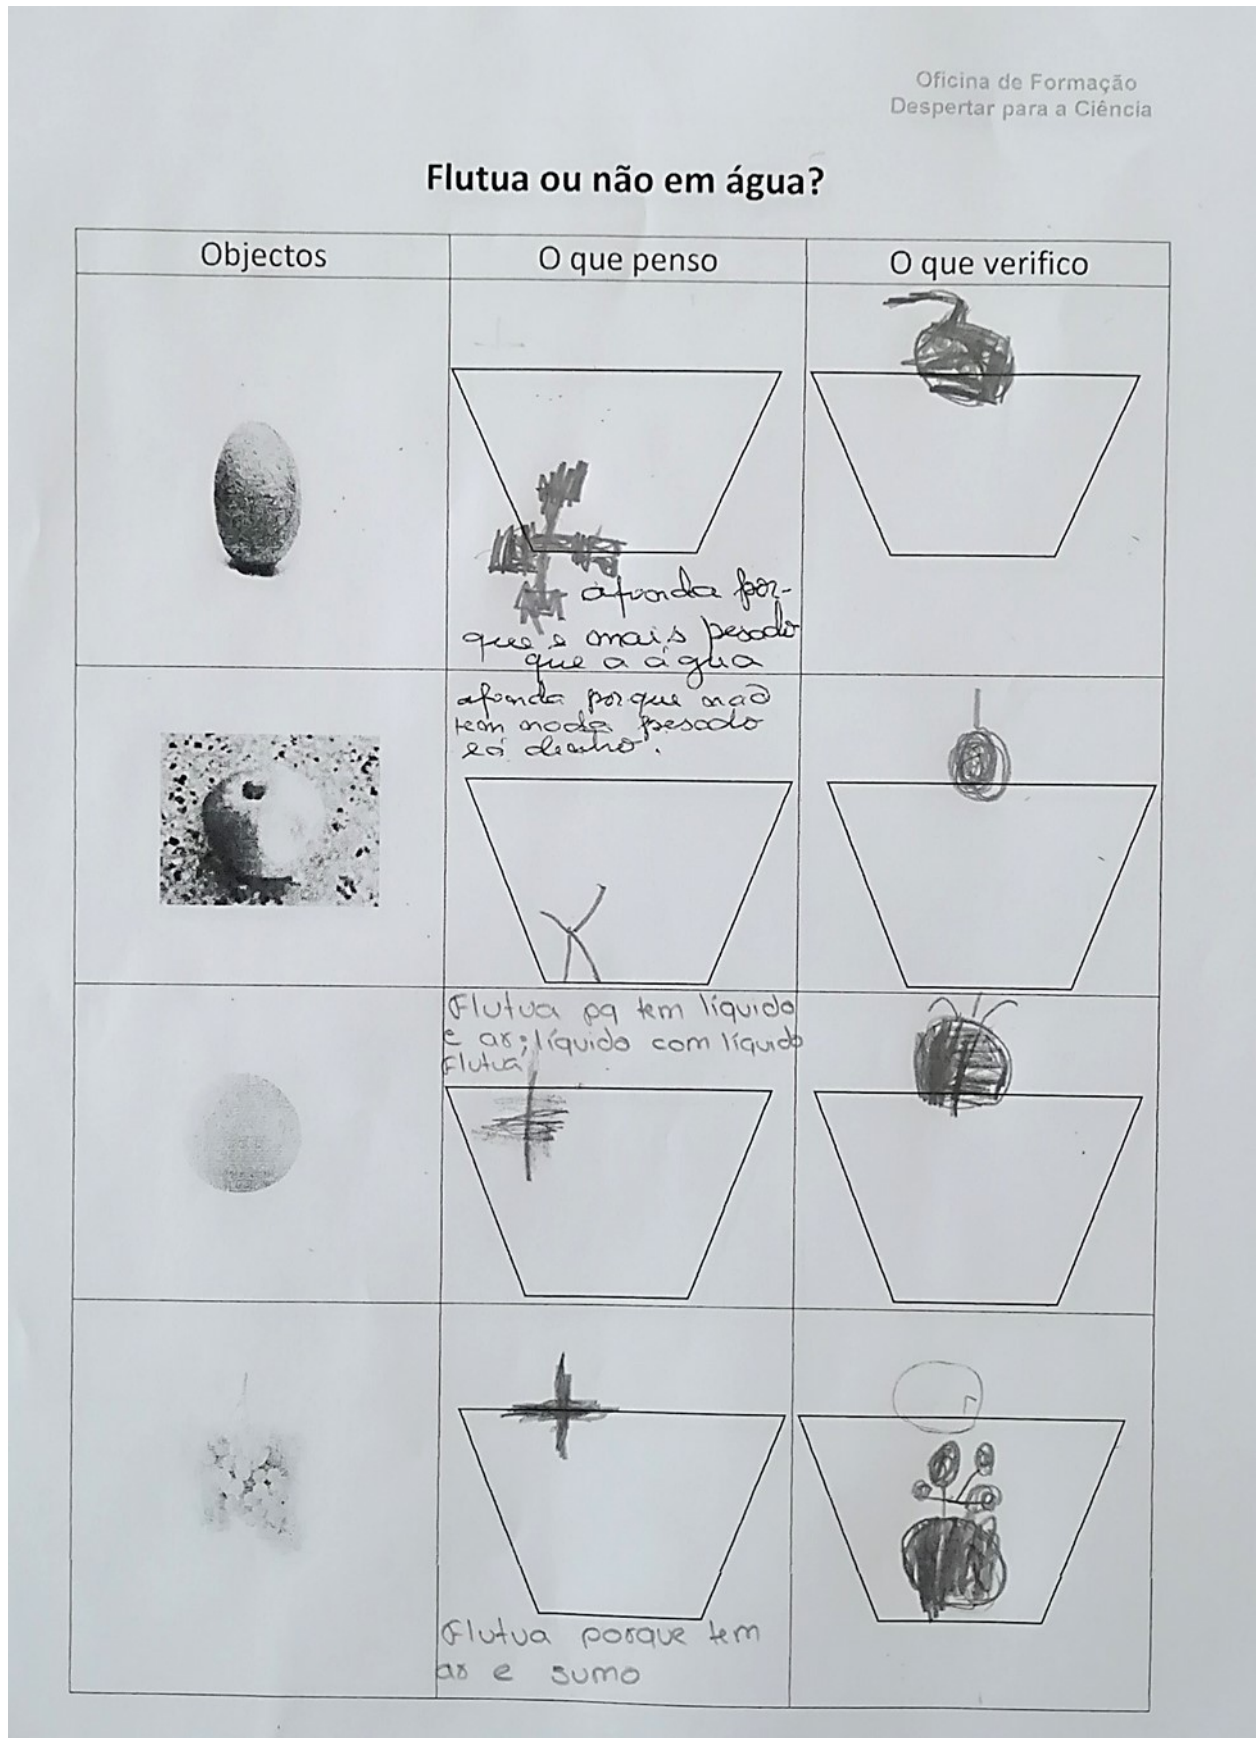 Oficina de Formação
Despertar para a Ciência
Flutua ou não em água?
Objectos
O que penso
O que verifico
afunda por-
que é mais pesado
que a água
afunda porque não
tem nada pesado
lá dentro.
Flutua pq tem líquido
e ar; líquido com líquido
flutua
Flutua porque tem
ar e sumo